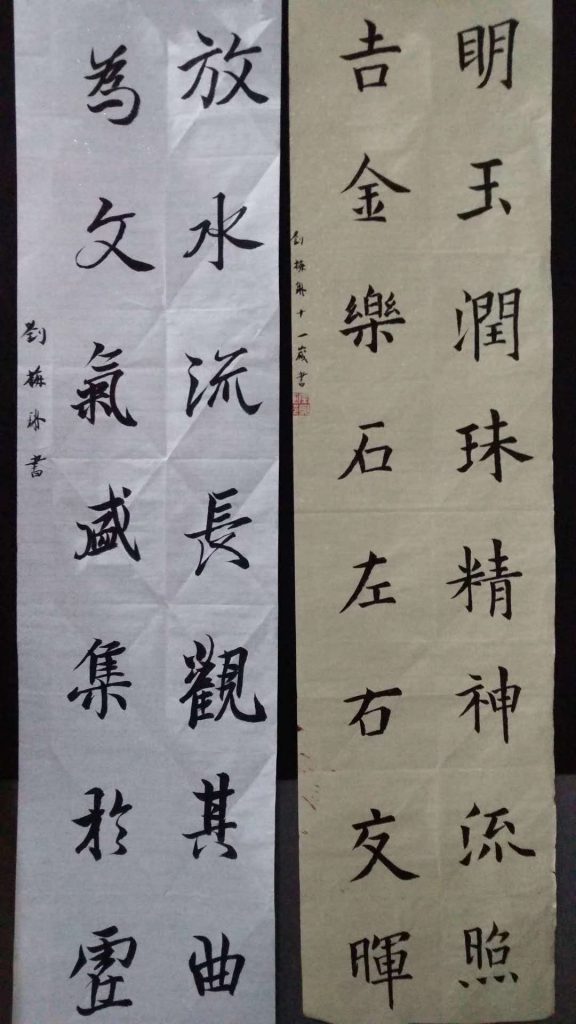 眀玉潤珠精神流照
吉金樂石左右交暉
劉梅十一歲書
放水流長觀其曲
為文氣盛集於虛
劉梅書